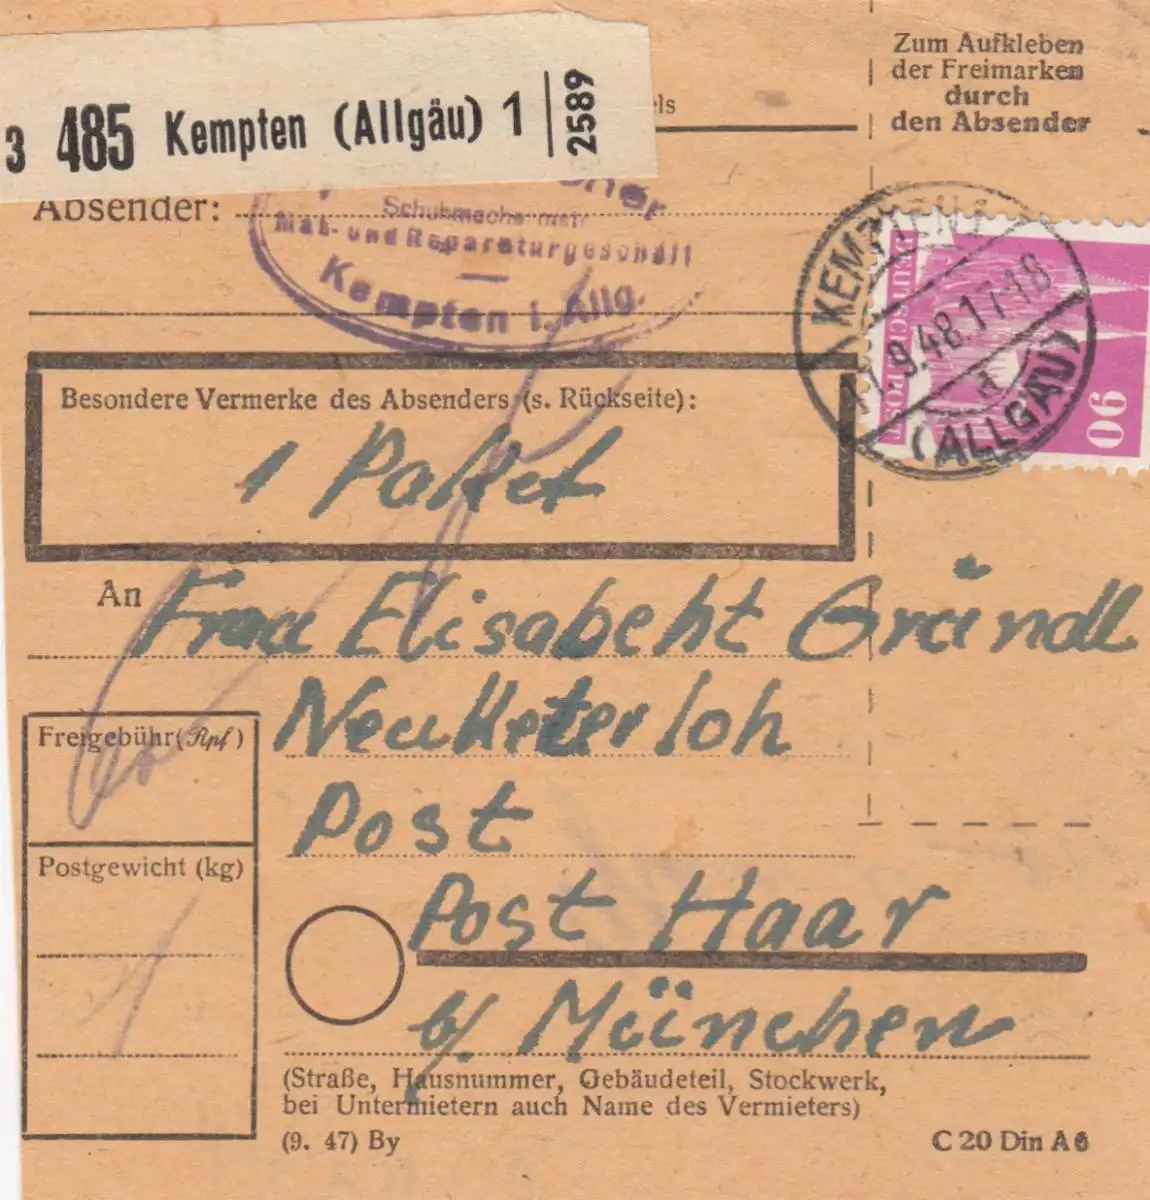 Zum Aufkleben
der Freimarken
durch
den Absender
3 485 Kempten (Allgäu) 1 2589
Absender:
Schuhmachermstr
Maß- und Reparaturgeschäft
Kempten i. Allg.
KEMPTEN 1
9.48.17-18
a
(ALLGÄU)
DEUTSCHE POST
90
Besondere Vermerke des Absenders (s. Rückseite):
1 Paket
An Frau Elisabeht Gründl
Neuketerloh
Post
Post Haar
b/ München
Freigebühr (Rpf)
Postgewicht (kg)
1
(Straße, Hausnummer, Gebäudeteil, Stockwerk,
bei Untermietern auch Name des Vermieters)
(9. 47) By
C 20 Din A 6